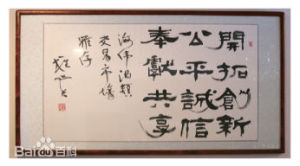 開拓創新
公平誠信
奉獻共享
海偉酒類
交易市場
雅存
Baidu百科